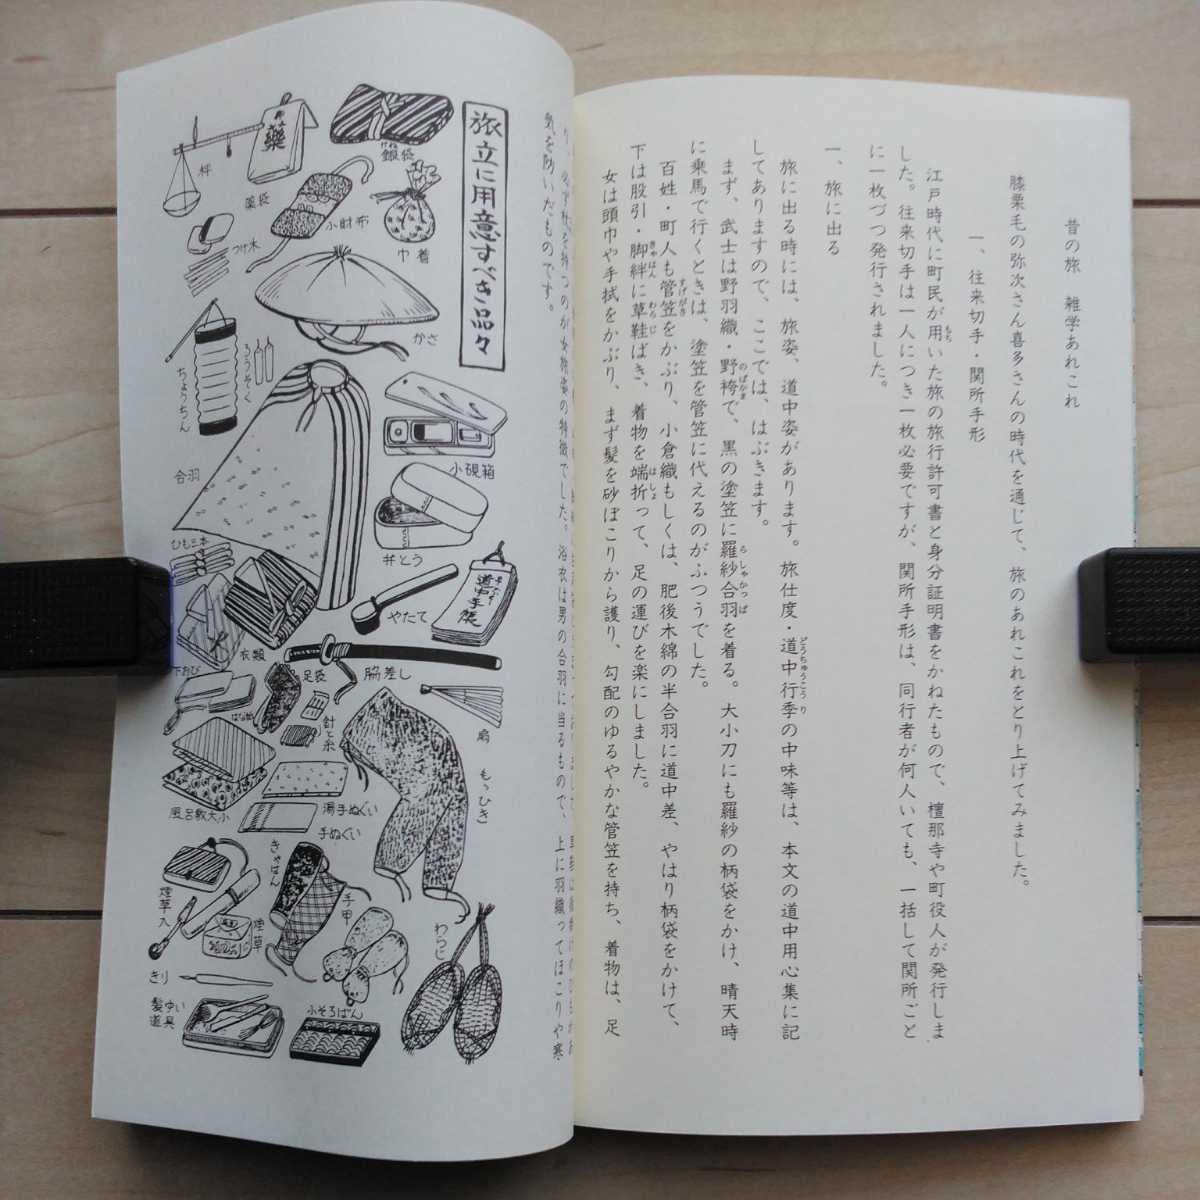 昔の旅 雑学あれこれ
膝栗毛の弥次さん喜多さんの時代を通じて、旅のあれこれをとり上げてみました。
一、往来切手・関所手形
江戸時代に町民が用いた旅の旅行許可書と身分証明書をかねたもので、檀那寺や町役人が発行しま
した。往来切手は一人につき一枚必要ですが、関所手形は、同行者が何人いても、一括して関所ごと
に一枚づつ発行されました。
一、旅に出る
旅に出る時には、旅姿、道中姿があります。旅仕度・道中行李の中味等は、本文の道中用心集に記
してありますので、ここでは、はぶきます。
まず、武士は野羽織・野袴で、黒の塗笠に羅紗合羽を着る。大小刀にも羅紗の柄袋をかけ、晴天時
に乗馬で行くときは、塗笠を管笠に代えるのがふつうでした。
百姓・町人も管笠をかぶり、小倉織もしくは、肥後木綿の半合羽に道中差、やはり柄袋をかけて、
下は股引・脚絆に草鞋ばき、着物を端折って、足の運びを楽にしました。
女は頭巾や手拭をかぶり、まず髪を砂ぼこりから護り、勾配のゆるやかな管笠を持ち、着物は、足
を持つのが女旅姿の特徴でした。浴衣は男の合羽に当るもので、上に羽織ってほこりや寒
気を防いだものです。
旅立に用意すべき品々
銀袋
薬
薬袋
秤
小財布
巾着
つけ木
かさ
ろうそく
ちょうちん
小硯箱
合羽
弁とう
ひも三本
やたて
道中手帳
衣類
下おび
足袋
脇差し
扇
はな紙
針と糸
もゝひき
風呂敷大小
湯手ぬぐい
手ぬぐい
きゃはん
手甲
わらじ
煙草入
煙草
きり
髪ゆい道具
ふそろばん